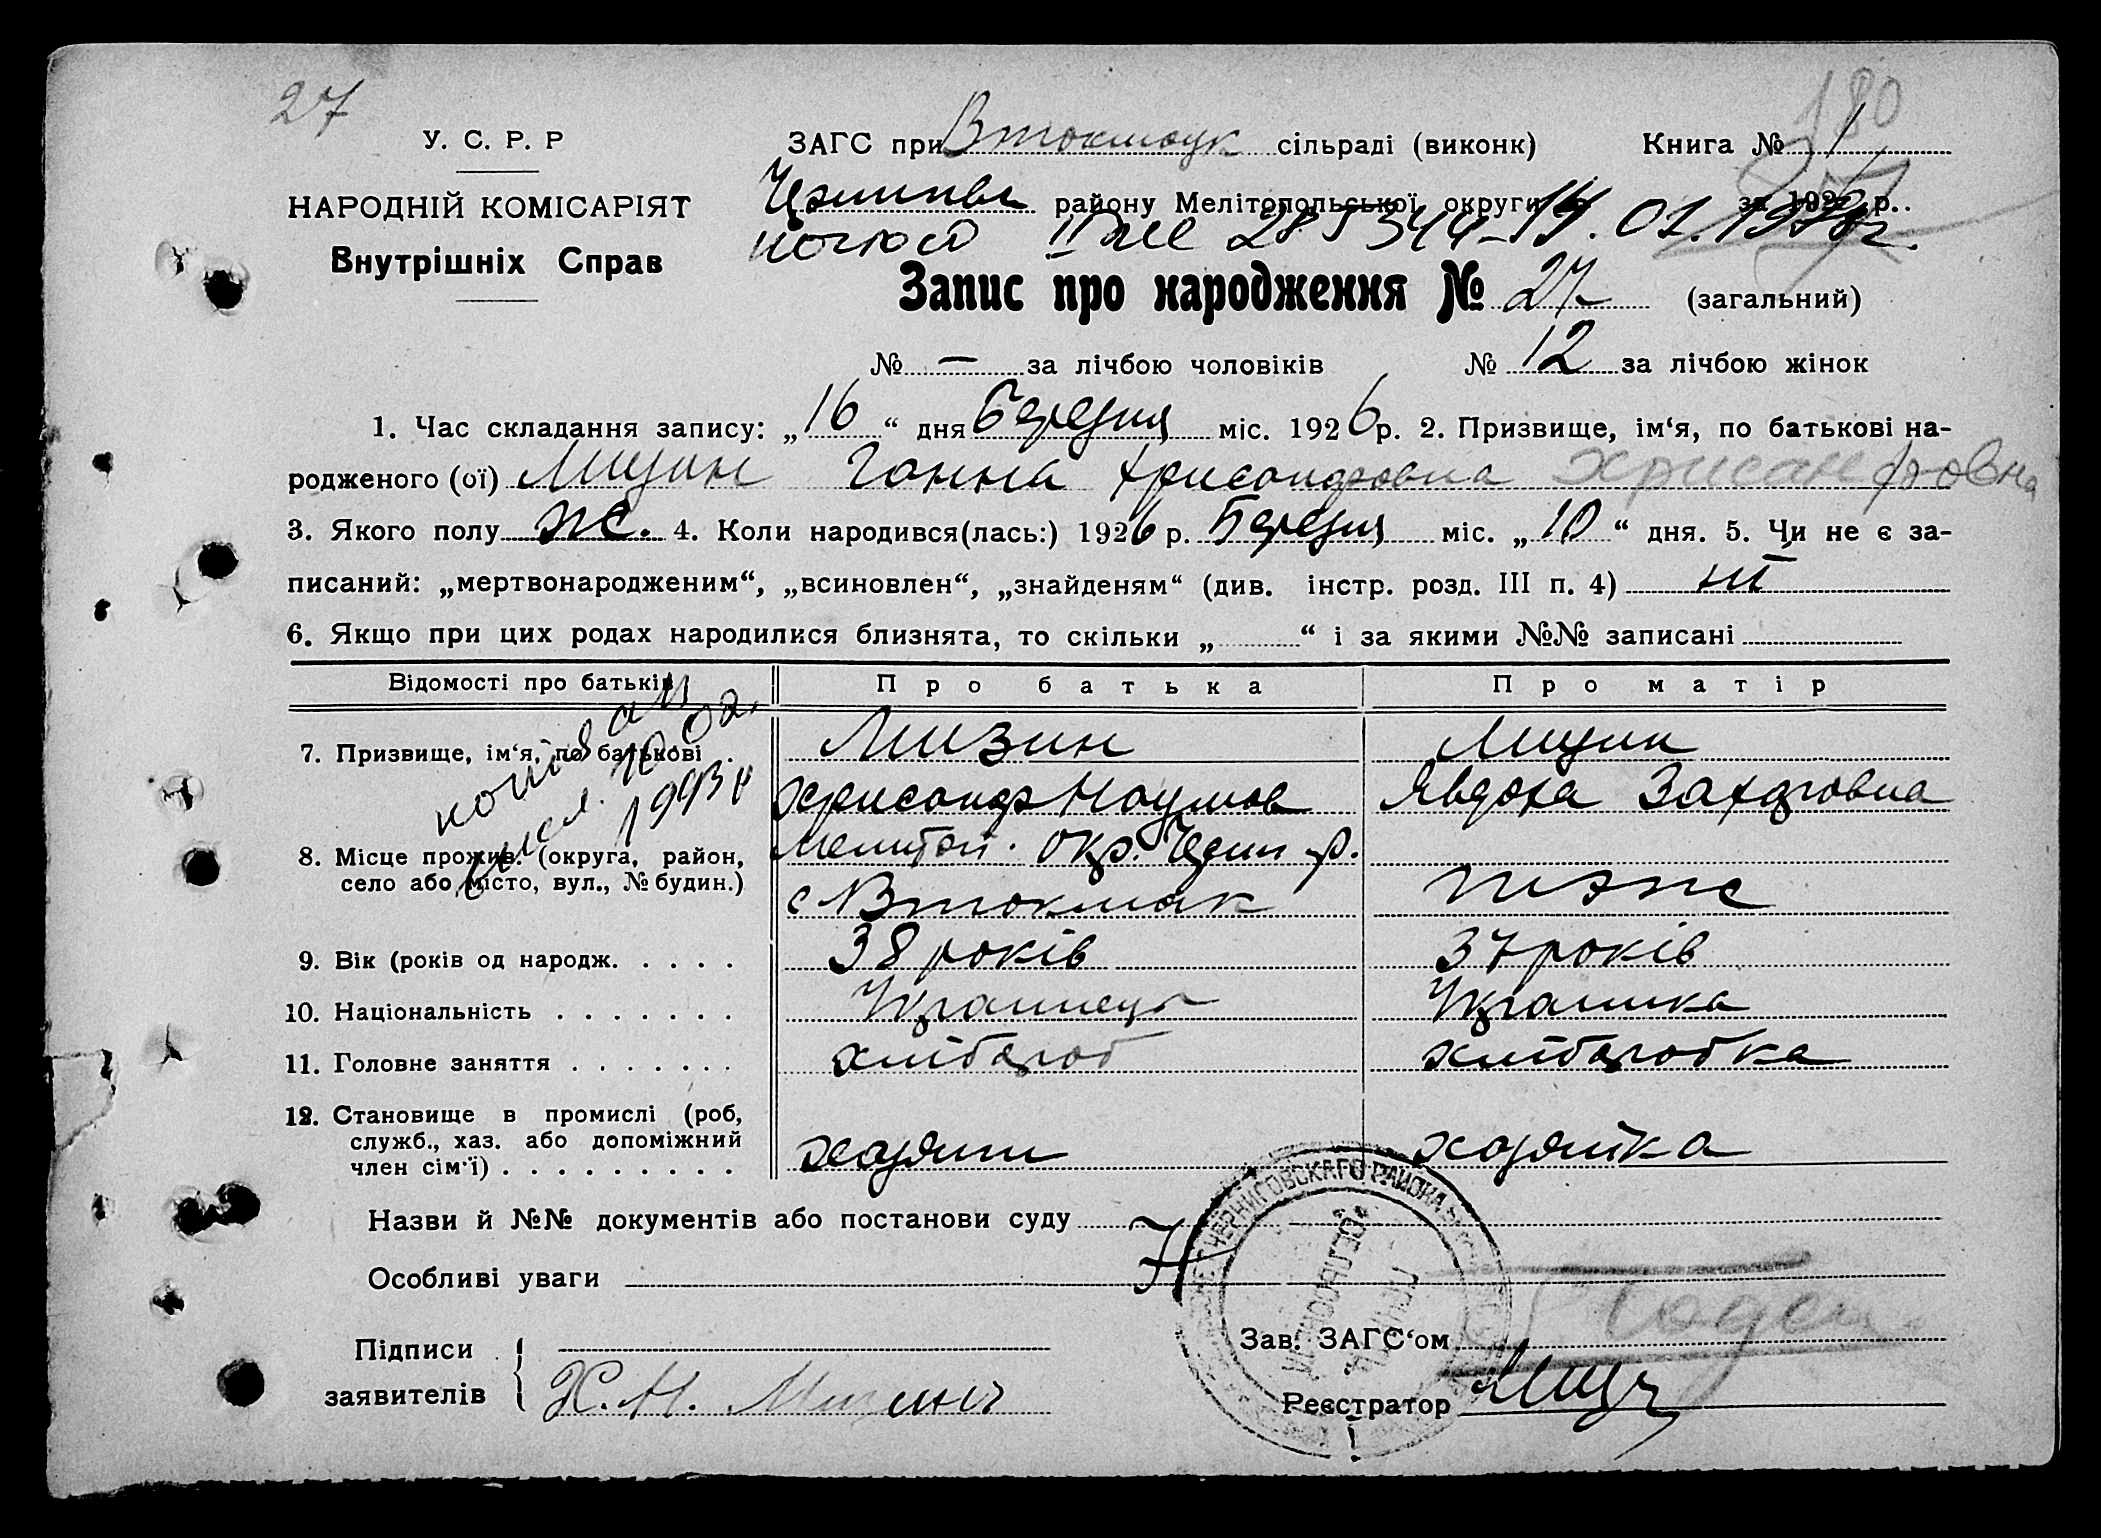 27
180
У. С. Р. Р
НАРОДНІЙ КОМІСАРІЯТ
Внутрішніх Справ
ЗАГС при Втокмацк сільраді (виконк) Книга № 1
району Мелітопольської округи за 1926 р.
II 344 14.01.
Запис про народження № 27 (загальний)
№ — за лічбою чоловіків № 12 за лічбою жінок
1. Час складання запису: „16“ дня Березня міс. 1926 р. 2. Призвище, ім‘я, по батькові на-
родженого (ої) Мизин Ганна Хрисандровна Хрисанфовна
3. Якого полу ж. 4. Коли народився(лась:) 1926 р. Березня міс. „10“ дня. 5. Чи не є за-
писаний: „мертвонародженим“, „всиновлен“, „знайденям“ (див. інстр. розд. III п. 4) ні
6. Якщо при цих родах народилися близнята, то скільки „ “ і за якими №№ записані
Відомості про батьків Про батька Про матір
7. Призвище, ім‘я, по батькові Мизин Мизин
Хрисандр Наумов Явдоха Захаровна
8. Місце прожив. (округа, район, Меліт оп. окр. Черн р.
село або місто, вул., № будин.) с Втокмак теж
9. Вік (років од народж. 38 років 37 років
10. Національність Українець Українка
11. Головне заняття хлібороб хліборобка
12. Становище в промислі (роб,
служб., хаз. або допоміжний
член сім‘ї) хозяин хозяйка
Назви й №№ документів або постанови суду
Особливі уваги
ЧЕРНИГОВСКАГО РАЙОНА
Підписи
заявителів Х. Н. Мизинъ
Зав. ЗАГС‘ом
Реєстратор